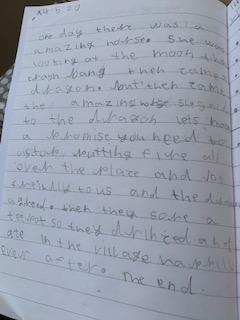 one day there was a
amazing horse. She was
looking at the moon then
crash bang then came a
dragon. but then came
the amazing horse she said
to the dragon lets
a promise you need to
stop putting fire all
over the place and be
to us and the
agreed. then they a
so they and
ate in the village happily
ever after. The end.